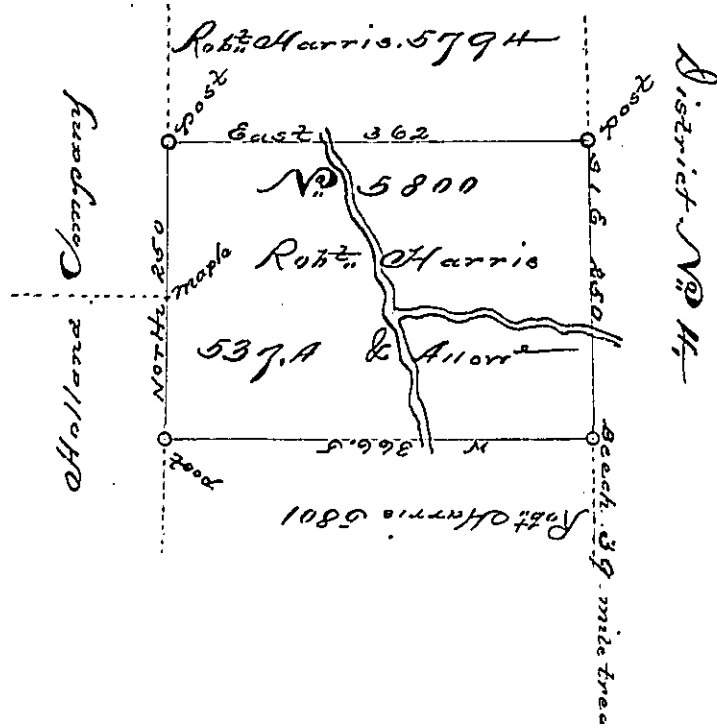 Robt. Harris. 5794
Post
Post
East 362
No. 5800
Robt. Harris
537. A & Allowe
North 250
maple
S 1 E 250
W 366.5
Post
Beech 39 mile tree
Robt. Harris 5801
Holland Company
District No. 4,